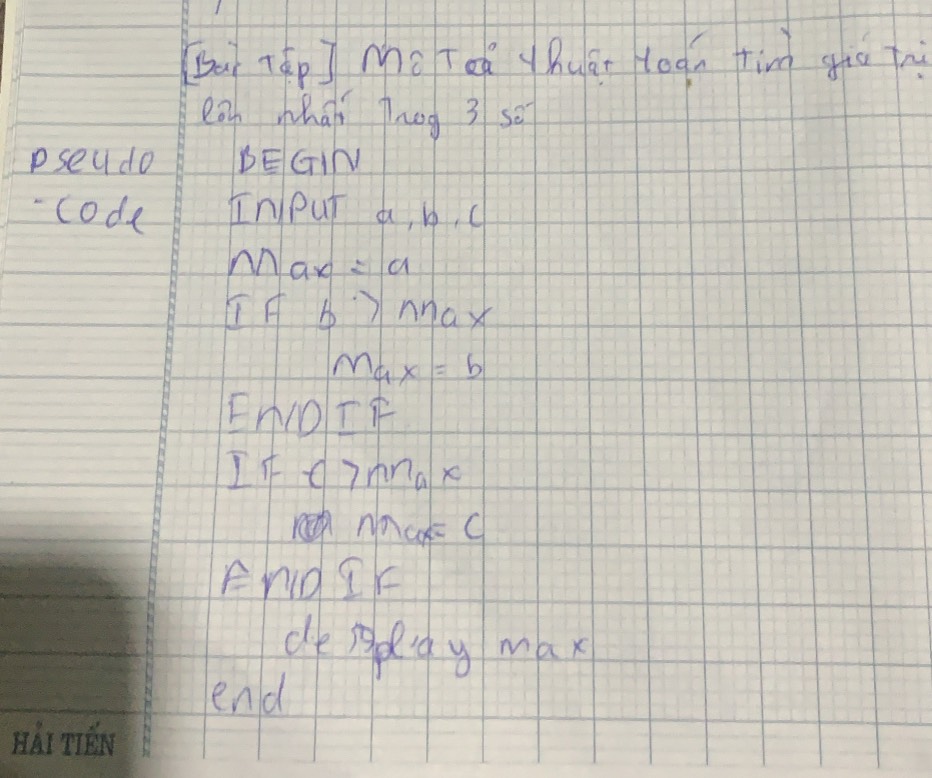 [Bài Tập] Mô Tả thuật toán tìm giá Trị
lớn nhất Trog 3 số
pseudo BEGIN
-code INPUT a, b, c
Max = a
IF b > max
Max = b
ENDIF
IF c > max
max = c
ENDIF
desplay max
end
HẢI TIẾN